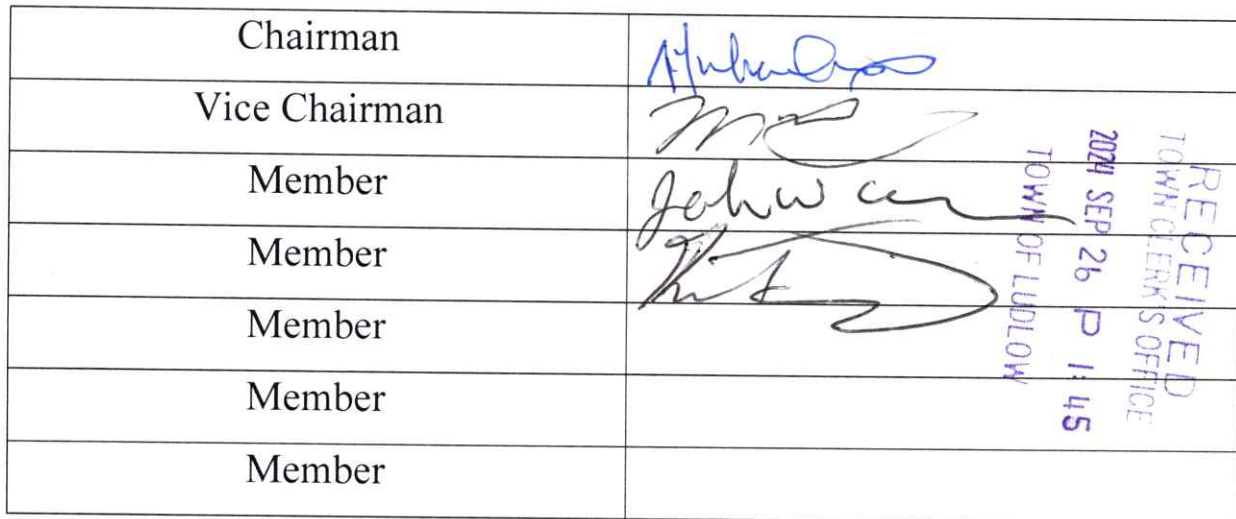 Chairman
Vice Chairman
Member
John W
Member
Member
Member
Member
RECEIVED
TOWN CLERK'S OFFICE
2024 SEP 26 P 1:45
TOWN OF LUDLOW